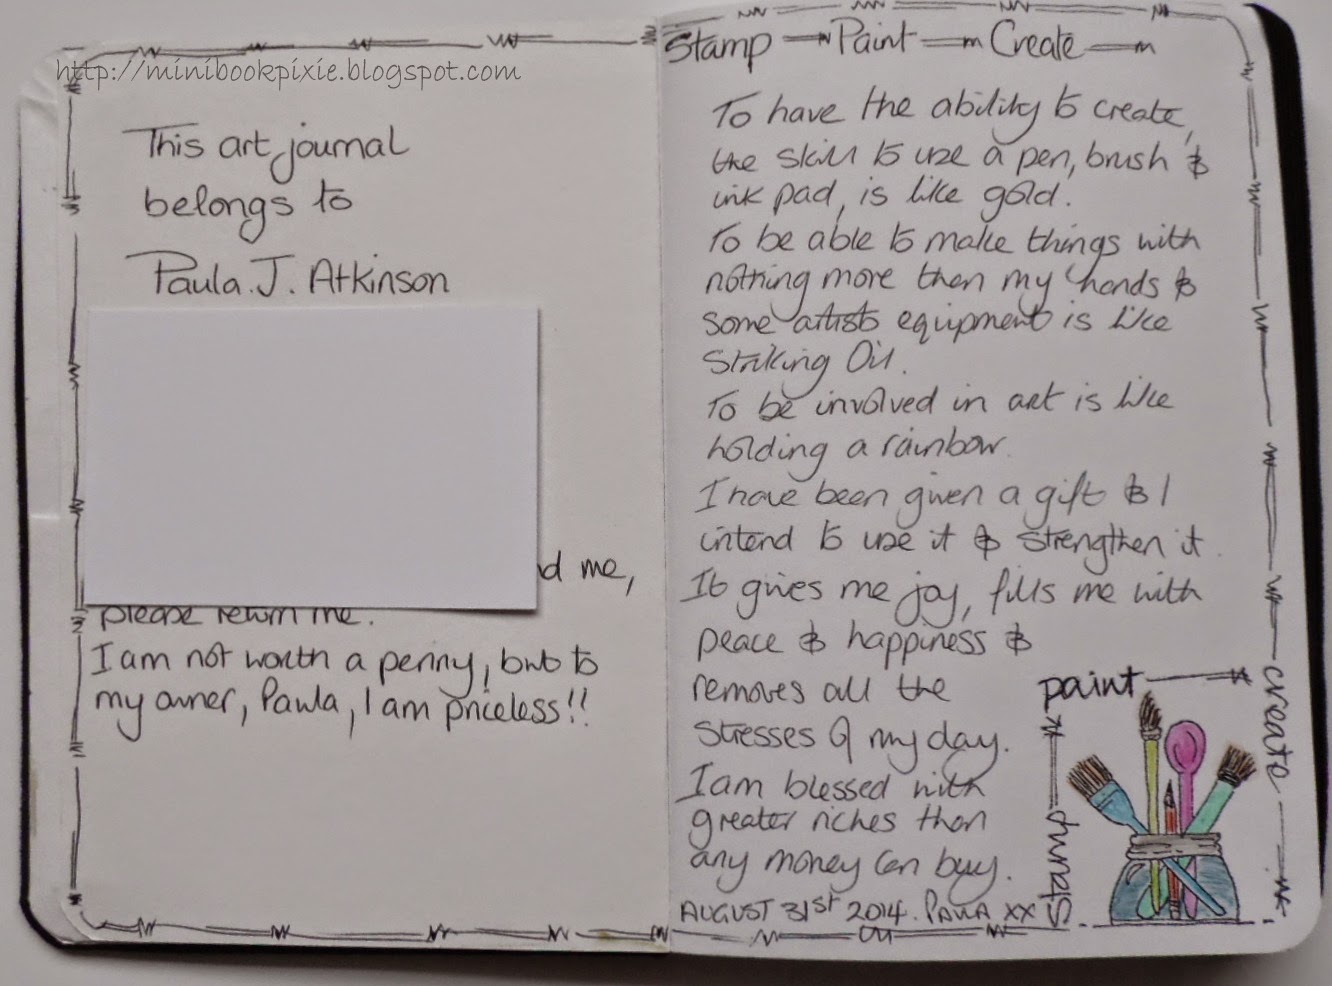 http://minibookpixie.blogspot.com
This art journal
belongs to
Paula. J. Atkinson
me,
please return me.
I am not worth a penny, but to
my owner, Paula, I am priceless!!
Stamp Paint Create
To have the ability to create,
the skill to use a pen, brush &
ink pad, is like gold.
To be able to make things with
nothing more than my hands &
some artists equipment is like
Striking Oil.
To be involved in art is like
holding a rainbow.
I have been given a gift & I
intend to use it & strengthen it.
It gives me joy, fills me with
peace & happiness &
removes all the
stresses of my day.
I am blessed with
greater riches than
any money can buy.
AUGUST 31st 2014. PAULA XX
paint
create
stamp